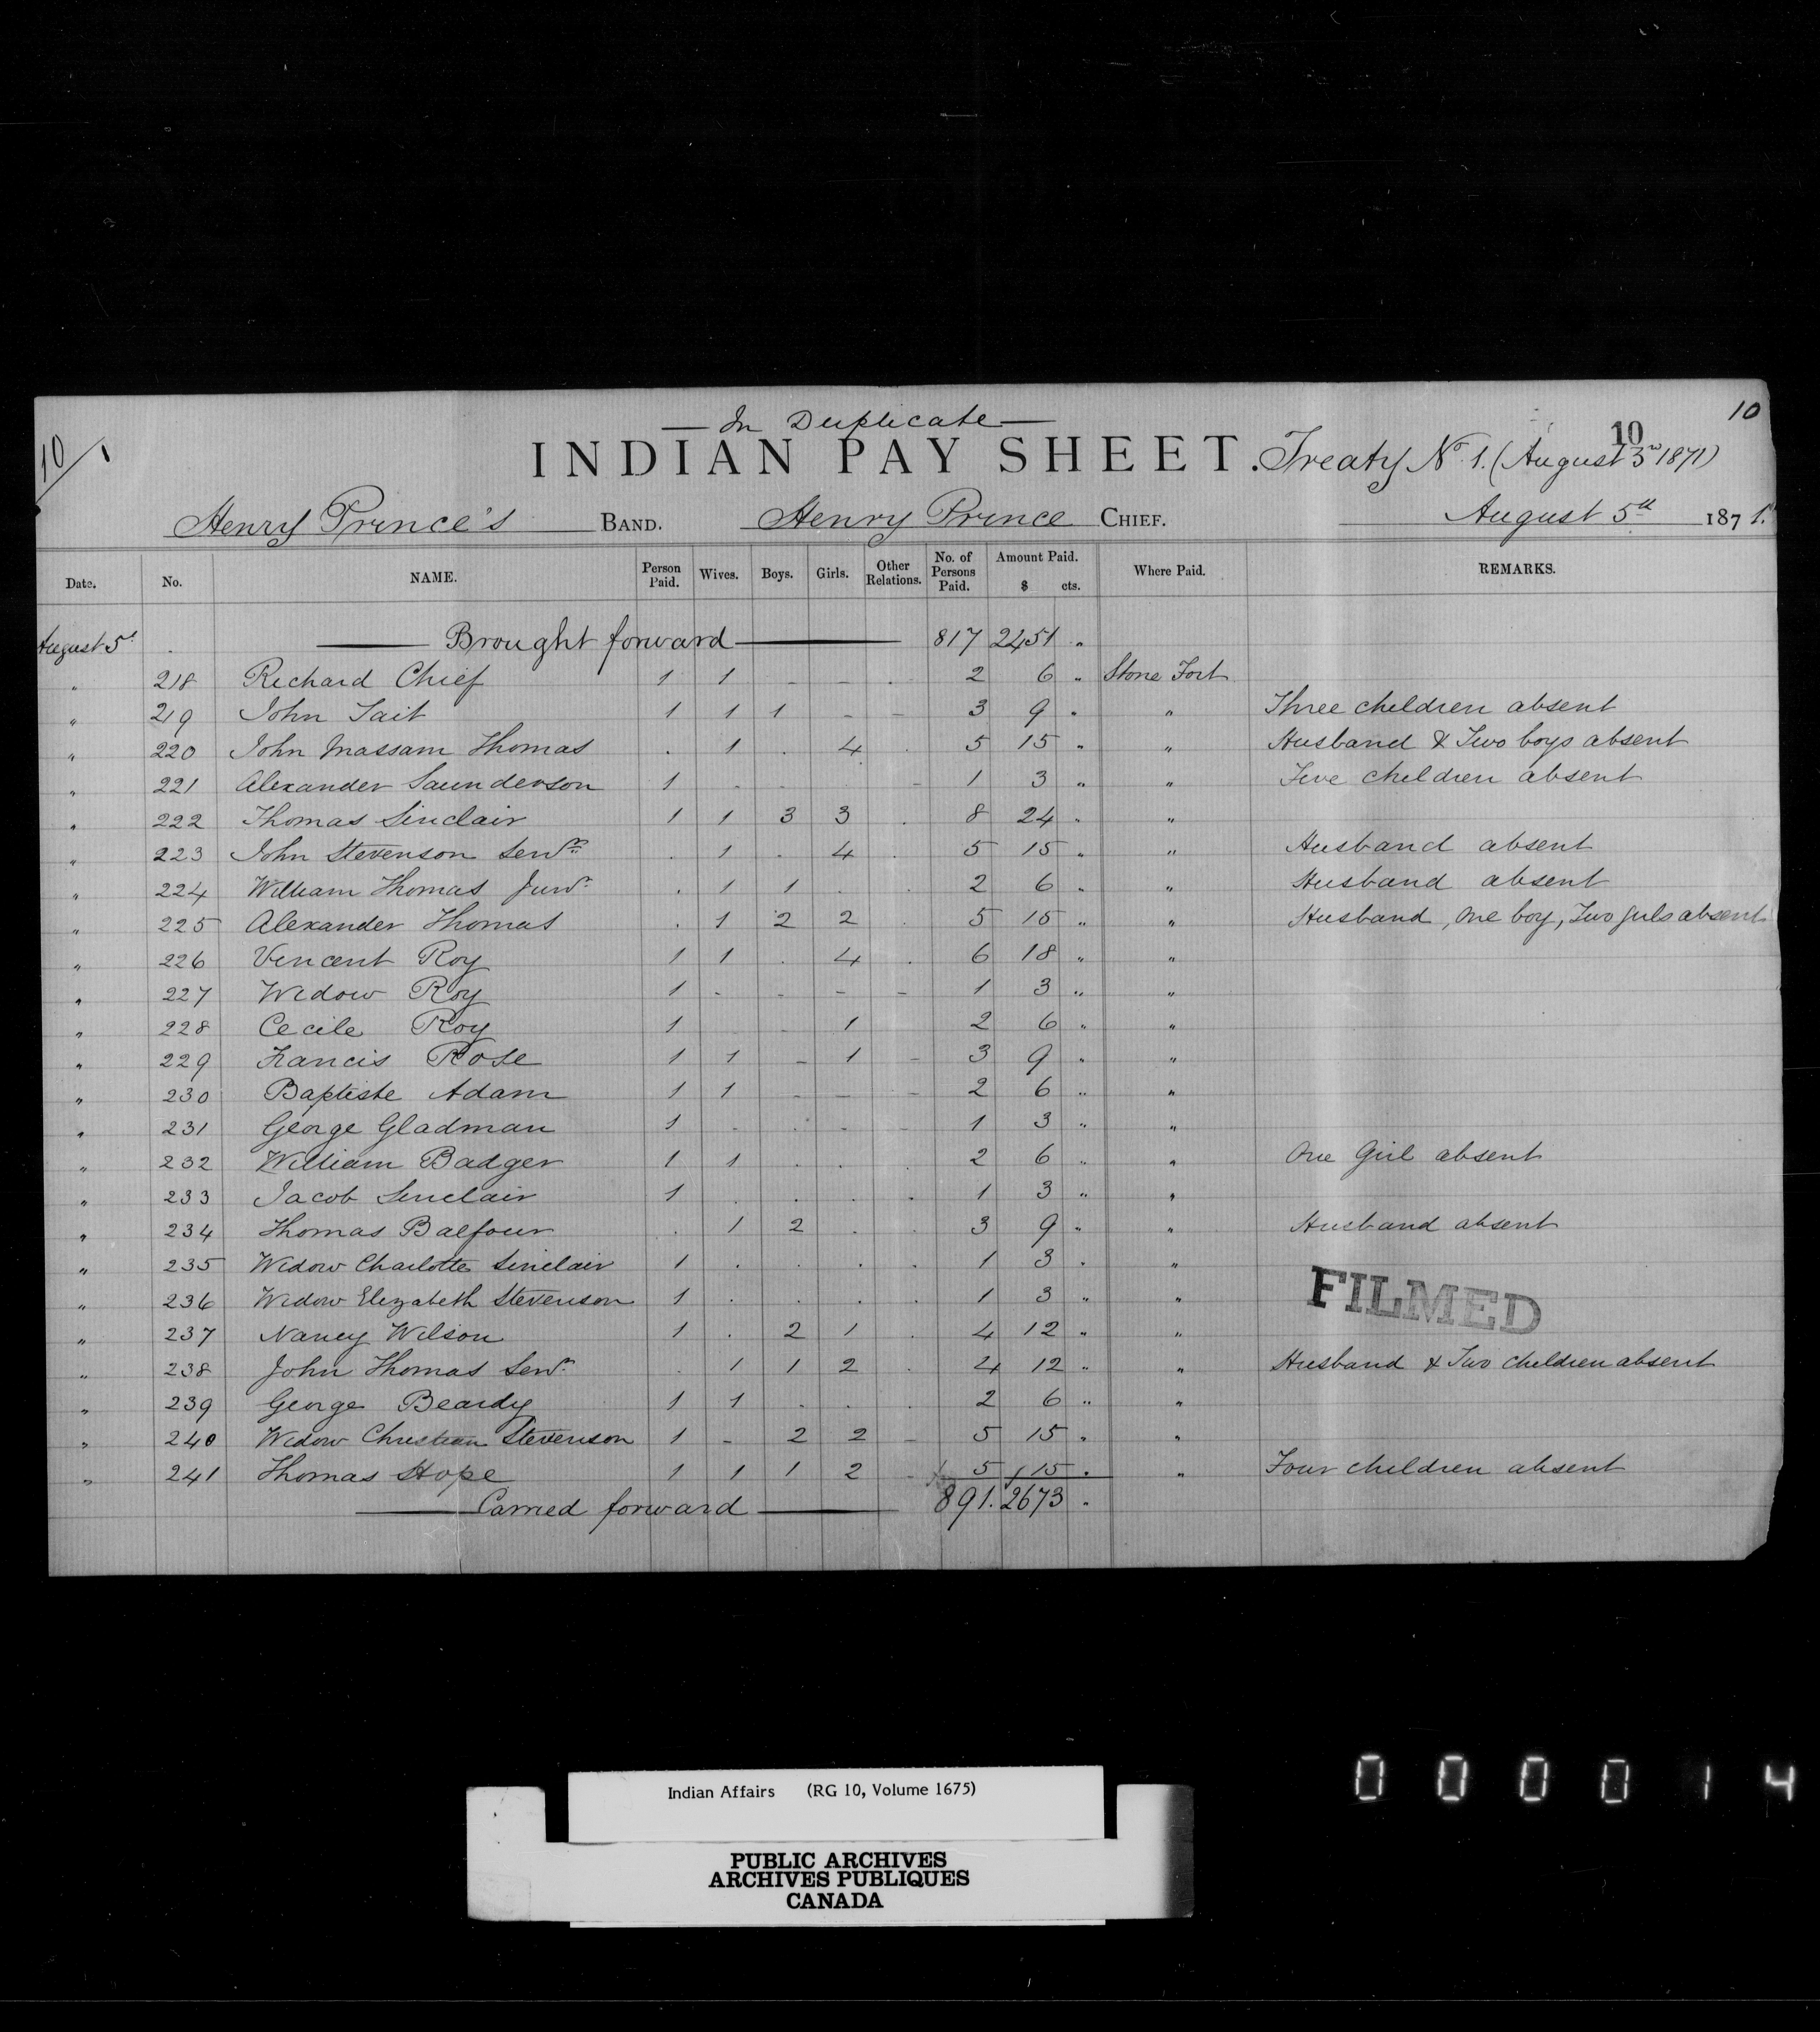 10
10
— In Duplicate —
10/1
INDIAN PAY SHEET. Treaty No 1. (August 3rd 1871)
Henry Prince's BAND. Henry Prince CHIEF. August 5th 1871.
Date. No. NAME. Person Paid. Wives. Boys. Girls. Other Relations. No. of Persons Paid. Amount Paid. $ cts. Where Paid. REMARKS.
August 5th . Brought forward 817 2451 "
" 218 Richard Chief 1 1 - - . 2 6 " Stone Fort
" 219 John Tait 1 1 1 - - 3 9 " " Three children absent
" 220 John Massam Thomas . 1 . 4 . 5 15 " " Husband & Two boys absent
" 221 Alexander Saunderson 1 - - - 1 3 " " Five children absent
" 222 Thomas Sinclair 1 1 3 3 . 8 24 " "
" 223 John Stevenson Senr. . 1 . 4 . 5 15 " " Husband absent
" 224 William Thomas Junr. . 1 1 . . 2 6 " " Husband absent
" 225 Alexander Thomas . 1 2 2 . 5 15 " " Husband, One boy, Two girls absent
" 226 Vincent Roy 1 1 . 4 . 6 18 " "
" 227 Widow Roy 1 - - - - 1 3 " "
" 228 Cecile Roy 1 - 1 2 6 " "
" 229 Francis Rose 1 1 - 1 - 3 9 " "
" 230 Baptiste Adam 1 1 - - - 2 6 " "
" 231 George Gladman 1 - . - - 1 3 " "
" 232 William Badger 1 1 . . . 2 6 " " One Girl absent
" 233 Jacob Sinclair 1 . . . . 1 3 " "
" 234 Thomas Balfour . 1 2 . . 3 9 " " Husband absent
" 235 Widow Charlotte Sinclair 1 . . . . 1 3 " "
" 236 Widow Elizabeth Stevenson 1 . . . . 1 3 " "
FILMED
" 237 Nancy Wilson 1 . 2 1 . 4 12 " "
" 238 John Thomas Senr. . 1 1 2 . 4 12 " " Husband & Two children absent
" 239 George Beardy 1 1 . . . 2 6 " "
" 240 Widow Christian Stevenson 1 - 2 2 - 5 15 " "
" 241 Thomas Hope 1 1 1 2 - 5 15 " " Four children absent
Carried forward 891. 2673 "
0 0 0 0 1 4
Indian Affairs (RG 10, Volume 1675)
PUBLIC ARCHIVES
ARCHIVES PUBLIQUES
CANADA